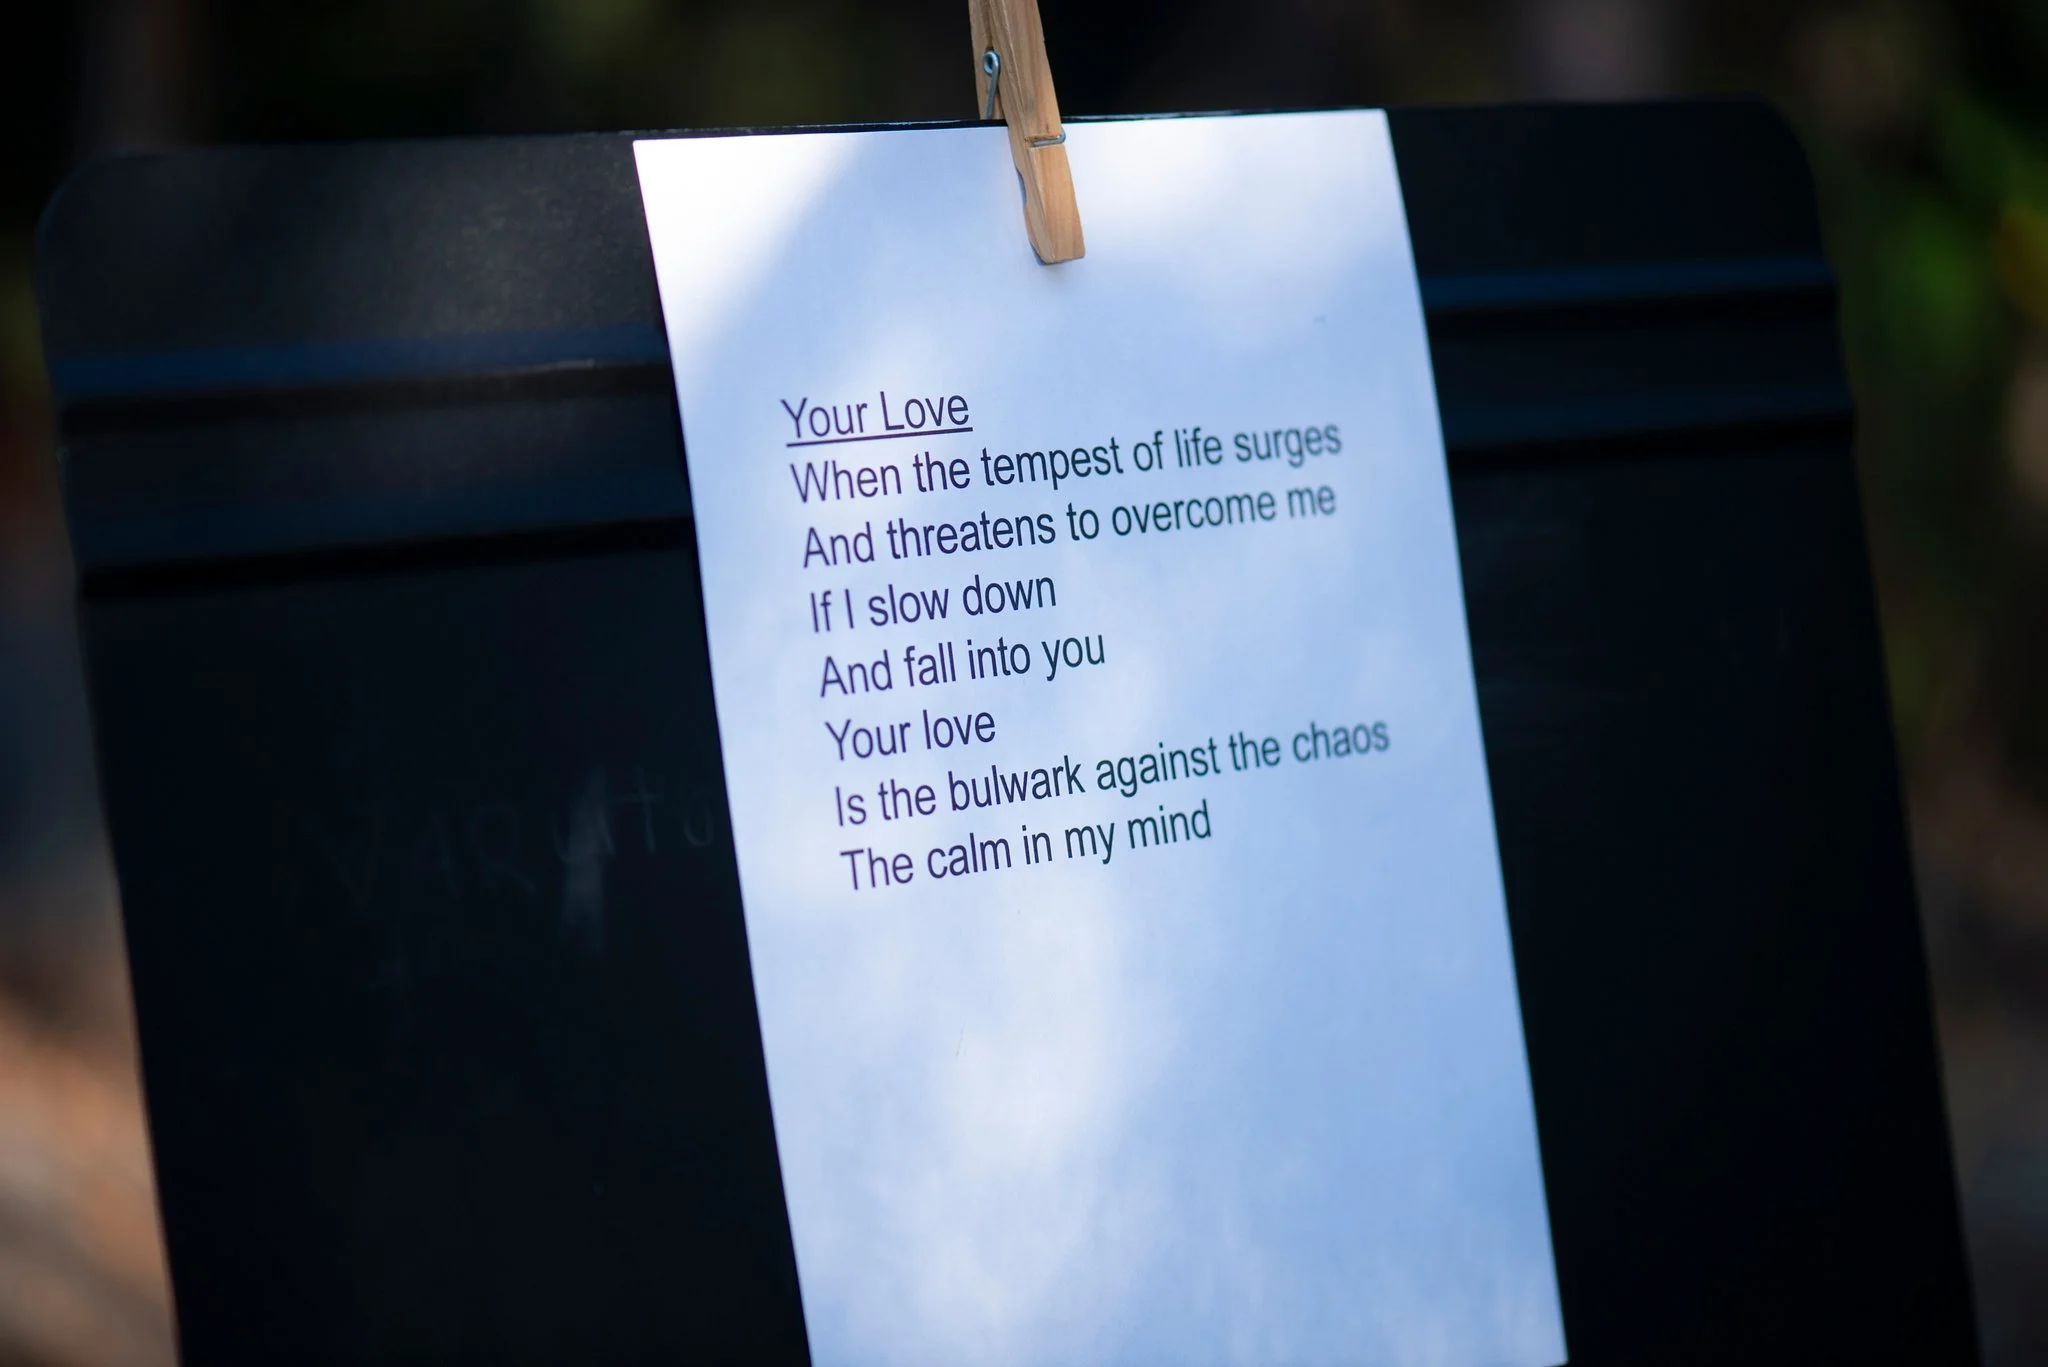 Your Love
When the tempest of life surges
And threatens to overcome me
If I slow down
And fall into you
Your love
Is the bulwark against the chaos
The calm in my mind